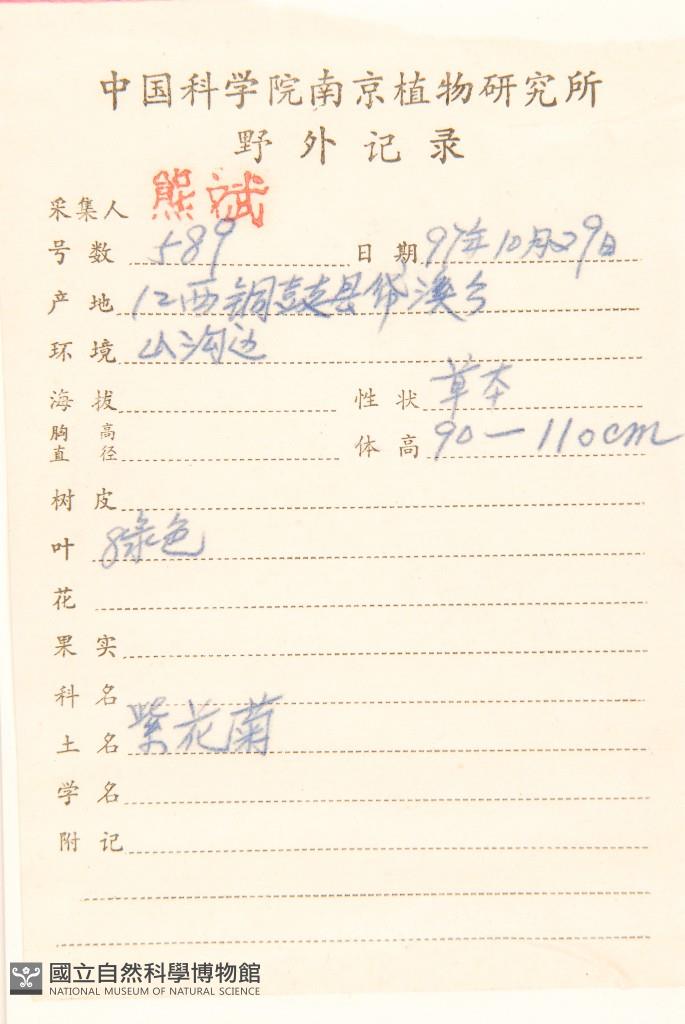 中国科学院南京植物研究所
野外记录
采集人 熊斌
号数 589 日期 97年10月29日
产地 江西铜鼓县带溪乡
环境 山沟边
海拔 性状 草本
胸高直径 体高 90—110cm
树皮
叶 绿色
花
果实
科名
土名 紫花菊
学名
附记
國立自然科學博物館
NATIONAL MUSEUM OF NATURAL SCIENCE